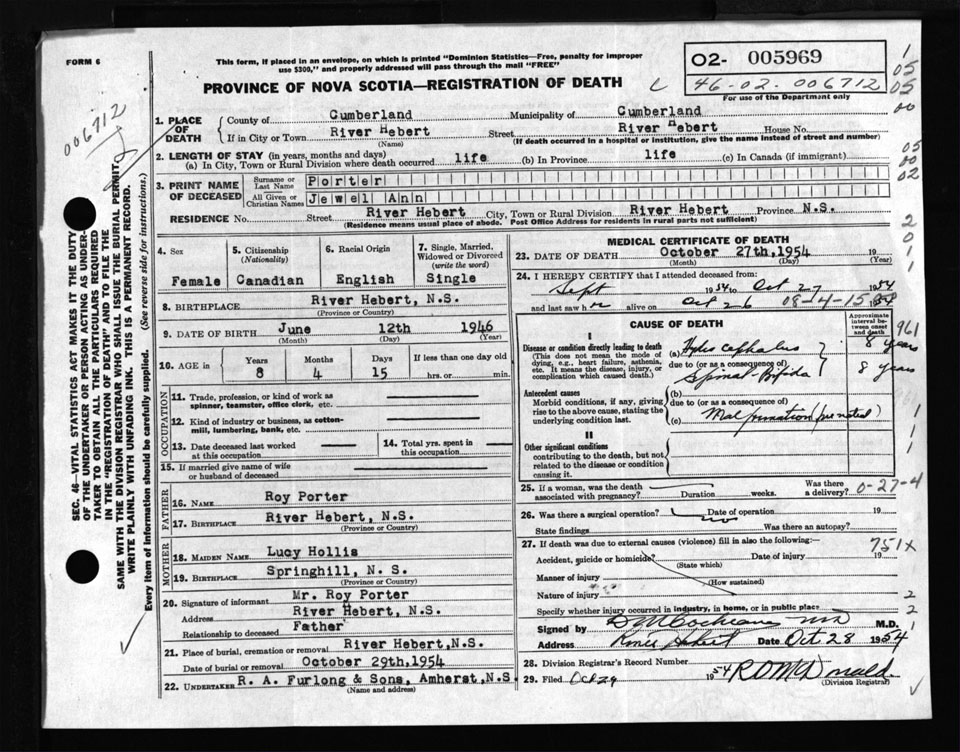 FORM 6
This form, if placed in an envelope, on which is printed "Dominion Statistics—Free, penalty for improper
use $300," and properly addressed will pass through the mail "FREE"
O2- 005969
PROVINCE OF NOVA SCOTIA—REGISTRATION OF DEATH
46-02-006712
For use of the Department only
006712
1. PLACE OF DEATH
County of Cumberland Municipality of Cumberland
If in City or Town River Hebert Street River Hebert House No.
(Name) (If death occurred in a hospital or institution, give the name instead of street and number)
2. LENGTH OF STAY (in years, months and days)
(a) In City, Town or Rural Division where death occurred life (b) In Province life (c) In Canada (if immigrant)
3. PRINT NAME OF DECEASED
Surname or Last Name Porter
All Given or Christian Names Jewel Ann
RESIDENCE No. Street River Hebert City, Town or Rural Division River Hebert Province N.S.
(Residence means usual place of abode. Post Office Address for residents in rural parts not sufficient)
4. Sex
Female
5. Citizenship
(Nationality)
Canadian
6. Racial Origin
English
7. Single, Married, Widowed or Divorced
(write the word)
Single
8. BIRTHPLACE River Hebert, N.S.
(Province or Country)
9. DATE OF BIRTH June 12th 1946
(Month) (Day) (Year)
10. AGE in
Years Months Days If less than one day old
8 4 15 hrs. or min.
OCCUPATION
11. Trade, profession, or kind of work as
spinner, teamster, office clerk, etc.
12. Kind of industry or business, as cotton-
mill, lumbering, bank, etc.
13. Date deceased last worked
at this occupation
14. Total yrs. spent in
this occupation
15. If married give name of wife
or husband of deceased
FATHER
16. NAME Roy Porter
17. BIRTHPLACE River Hebert, N.S.
(Province or Country)
MOTHER
18. MAIDEN NAME Lucy Hollis
19. BIRTHPLACE Springhill, N. S.
(Province or Country)
20. Signature of informant Mr. Roy Porter
Address River Hebert, N.S.
Relationship to deceased Father
21. Place of burial, cremation or removal River Hebert,N.S.
Date of burial or removal October 29th,1954
22. UNDERTAKER R. A. Furlong & Sons, Amherst,N.S
(Name and address)
MEDICAL CERTIFICATE OF DEATH
23. DATE OF DEATH October 27th,1954 19
(Month) (Day) (Year)
24. I HEREBY CERTIFY that I attended deceased from:
Sept 1954 to Oct 27 1954
and last saw her alive on Oct 26 08-4-15 1954
CAUSE OF DEATH
Approximate interval between onset and death
I
Disease or condition directly leading to death
(This does not mean the mode of
dying, e.g., heart failure, asthenia,
etc. It means the disease, injury, or
complication which caused death.)
(a) Hydrocephalus 8 years
due to (or as a consequence of)
Spina-Bifida 8 years
961
Antecedent causes
Morbid conditions, if any, giving
rise to the above cause, stating the
underlying condition last.
(b)
due to (or as a consequence of)
(c) Malformation (prenatal)
II
Other significant conditions
contributing to the death, but not
related to the disease or condition
causing it.
25. If a woman, was the death
associated with pregnancy? Duration weeks. Was there
a delivery?
0-27-4
26. Was there a surgical operation? no Date of operation 19
State findings Was there an autopsy?
27. If death was due to external causes (violence) fill in also the following:—
751x
Accident, suicide or homicide? Date of injury 19
(State which)
Manner of injury
(How sustained)
Nature of injury
Specify whether injury occurred in industry, in home, or in public place
Signed by D M Cochrane MD M.D.
Address River Hebert Date Oct 28 1954
28. Division Registrar's Record Number
29. Filed Oct 29 1954
(Division Registrar)
SEC. 46—VITAL STATISTICS ACT MAKES IT THE DUTY
OF THE UNDERTAKER OR PERSON ACTING AS UNDER-
TAKER TO OBTAIN ALL THE PARTICULARS REQUIRED
IN THE "REGISTRATION OF DEATH" AND TO FILE THE
SAME WITH THE DIVISION REGISTRAR WHO SHALL ISSUE THE BURIAL PERMIT.
WRITE PLAINLY WITH UNFADING INK. THIS IS A PERMANENT RECORD.
Every item of information should be carefully supplied. (See reverse side for instructions.)
1
05
05
00
05
00
02
2
0
1
1
1
1
2
2
1